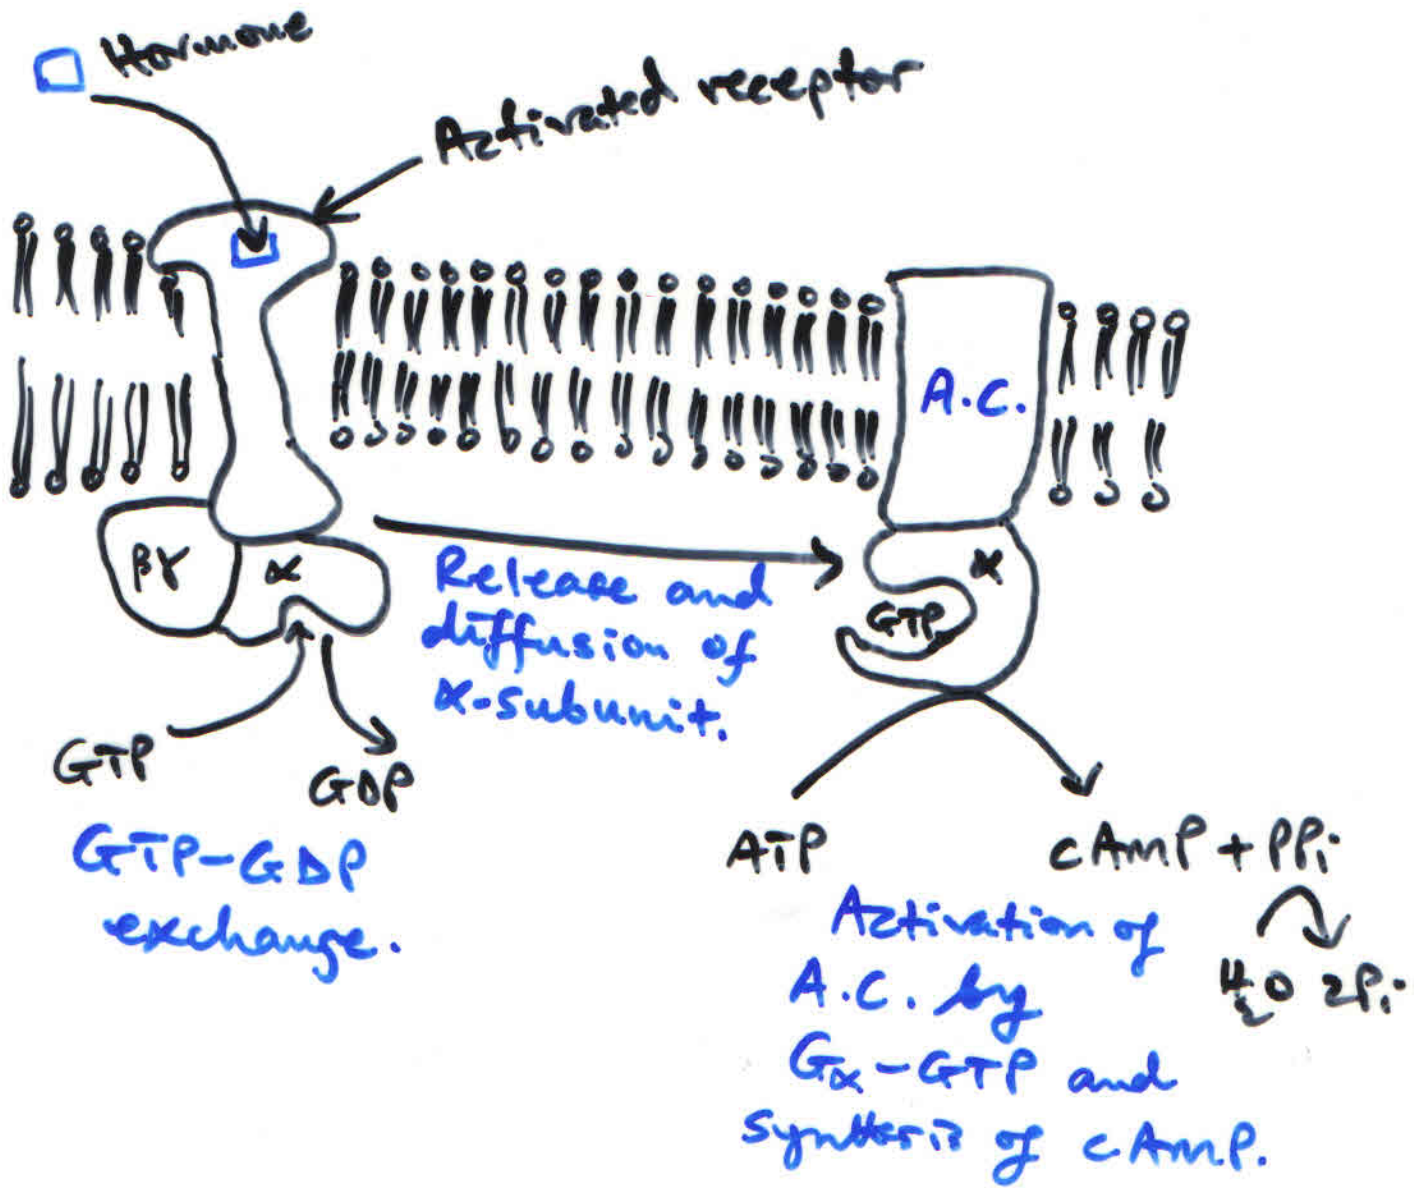 Hormone
Activated receptor
A.C.
βγ
α
α
GTP
Release and
diffusion of
α-subunit.
GTP
GDP
GTP-GDP
exchange.
ATP
cAMP + PPi
H2O 2Pi
Activation of
A.C. by
Gα-GTP and
synthesis of cAMP.